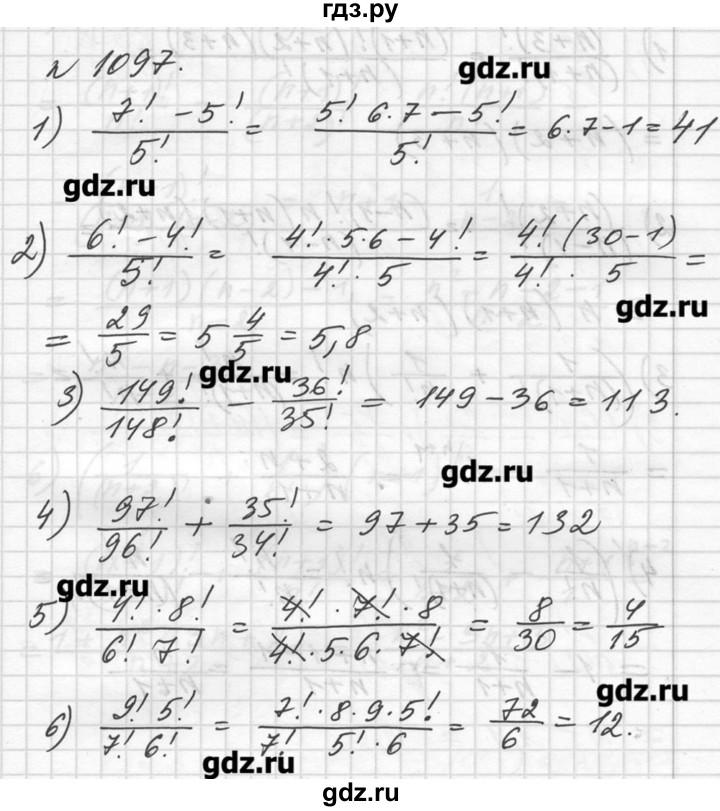 гдз.ру
№ 1097.
gdz.ru
1) (7! - 5!)/5! = (5! 6·7 - 5!)/5! = 6·7-1 = 41
gdz.ru
2) (6! - 4!)/5! = (4!·5·6 - 4!)/(4!·5) = (4! (30-1))/(4!·5) =
gdz.ru
= 29/5 = 5 4/5 = 5,8
gdz.ru
3) 149!/148! - 36!/35! = 149 - 36 = 113.
gdz.ru
4) 97!/96! + 35!/34! = 97 + 35 = 132
gdz.ru
5) (4!·8!)/(6! 7!) = (4!·7!·8)/(4!·5·6·7!) = 8/30 = 4/15
gdz.ru
6) (9! 5!)/(7! 6!) = (7!·8·9·5!)/(7! 5!·6) = 72/6 = 12.
gdz.ru
gdz.ru